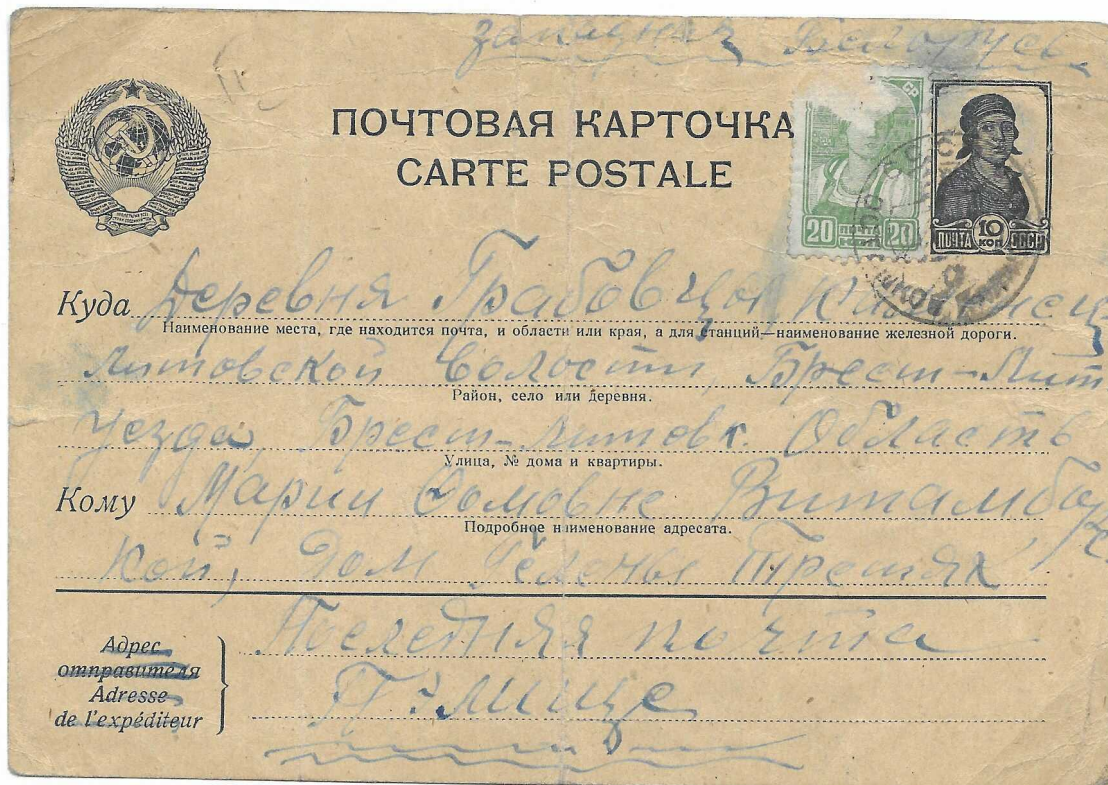 Западная Белорусь
ПОЧТОВАЯ КАРТОЧКА
CARTE POSTALE
СР
20 ПОЧТА 20
ПОЧТА 10 КОП СССР
Куда Деревня Грабовцы
Наименование места, где находится почта, и области или края, а для станций—наименование железной дороги.
Литовской Волости, Брест-Лит
Район, село или деревня.
Уезда, Брест-Литовк. Область
Улица, № дома и квартиры.
Кому Марии Витамбор
Подробное наименование адресата.
кой, Дом Гелены Третяк
Последняя почта
Адрес
отправителя
Adresse
de l'expéditeur